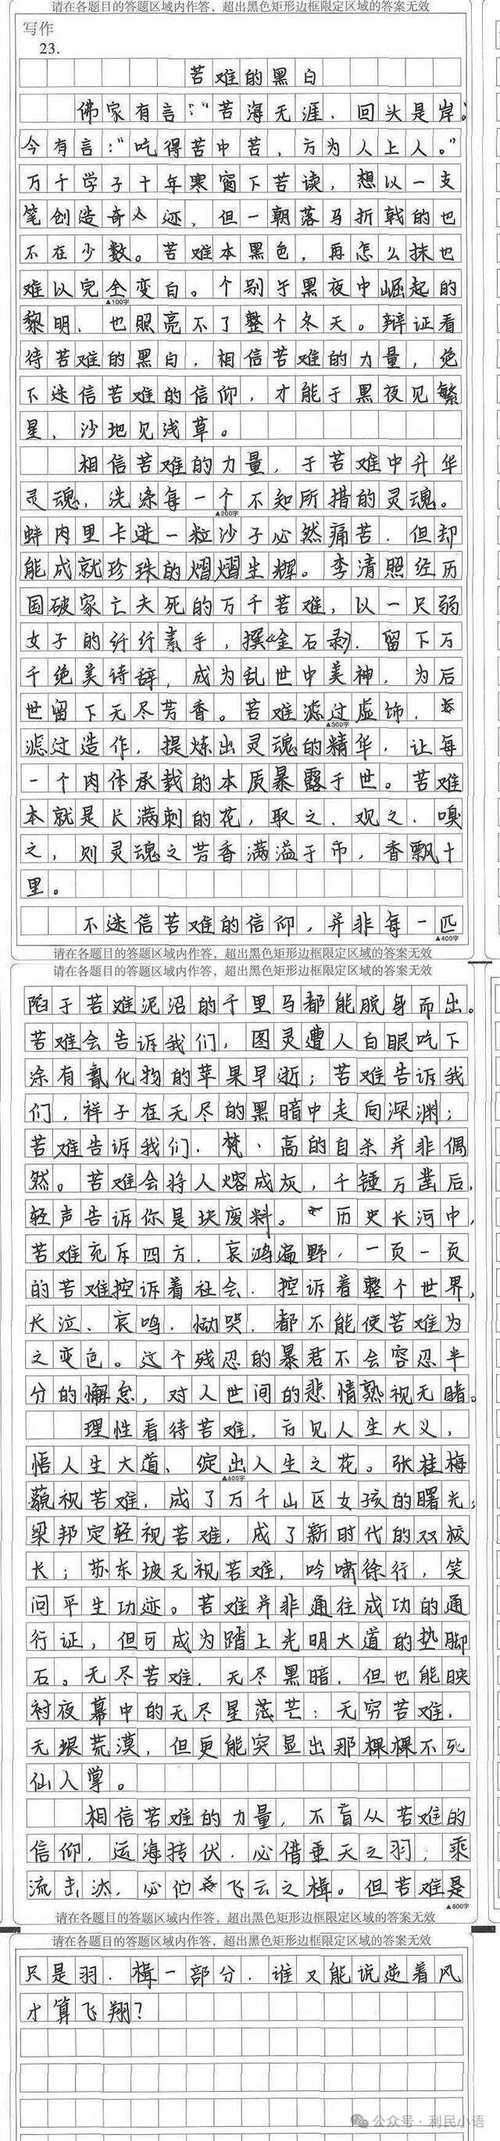 请在各题目的答题区域内作答，超出黑色矩形边框限定区域的答案无效
写作
23.
苦难的黑白
佛家有言：“苦海无涯，回头是岸。
今有言：“吃得苦中苦，方为人上人。”
万千学子十年寒窗下苦读，想以一支
笔创造奇迹，但一朝落马折戟的也
不在少数。苦难本黑色，再怎么抹也
难以完全变白。个别于黑夜中崛起的
▲100字
黎明，也照亮不了整个冬天。辩证看
待苦难的黑白，相信苦难的力量，绝
不迷信苦难的信仰，才能于黑夜见繁
星，沙地见浅草。
相信苦难的力量，于苦难中升华
灵魂，洗涤每一个不知所措的灵魂。
▲200字
蚌肉里卡进一粒沙子必然痛苦，但却
能成就珍珠的熠熠生辉。李清照经历
国破家亡夫死的万千苦难，以一只弱
女子的纤纤素手，撰《金石录》，留下万
千绝美诗辞，成为乱世中美神，为后
世留下无尽芳香。苦难滤过虚饰，
▲300字
滤过造作，提炼出灵魂的精华，让每
一个肉体承载的本质暴露于世。苦难
本就是长满刺的花，取之，观之，嗅
之，则灵魂之芳香满溢于市，香飘十
里。
不迷信苦难的信仰，并非每一匹
▲400字
请在各题目的答题区域内作答，超出黑色矩形边框限定区域的答案无效
请在各题目的答题区域内作答，超出黑色矩形边框限定区域的答案无效
陷于苦难泥沼的千里马都能脱身而出。
苦难会告诉我们，图灵遭人白眼吃下
涂有氰化物的苹果早逝；苦难告诉我
们，祥子在无尽的黑暗中走向深渊；
苦难告诉我们，梵·高的自杀并非偶
然。苦难会将人熔成灰，千锤万凿后，
轻声告诉你是块废料。历史长河中，
苦难充斥四方，哀鸿遍野，一页一页
的苦难控诉着社会，控诉着整个世界，
长泣、哀鸣，恸哭，都不能使苦难为
之变色。这个残忍的暴君不会容忍半
分的懈怠，对人世间的悲情熟视无睹。
理性看待苦难，方见人生大义，
悟人生大道，绽出人生之花。张桂梅
▲600字
藐视苦难，成了万千山区女孩的曙光；
梁邦定轻视苦难，成了新时代的双校
长；苏东坡无视苦难，吟啸徐行，笑
问平生功迹。苦难并非通往成功的通
行证，但可成为踏上光明大道的垫脚
石。无尽苦难，无尽黑暗，但也能映
衬夜幕中的无尽星芒；无穷苦难，
无垠荒漠，但更能突显出那棵棵不死
仙人掌。
相信苦难的力量，不盲从苦难的
信仰，运海抟伏，必借垂天之羽；乘
流击汰，必伫飞云之楫。但苦难是
▲800字
请在各题目的答题区域内作答，超出黑色矩形边框限定区域的答案无效
请在各题目的答题区域内作答，超出黑色矩形边框限定区域的答案无效
只是羽，楫一部分，谁又能说逆着风
才算飞翔？
公众号·利民小语